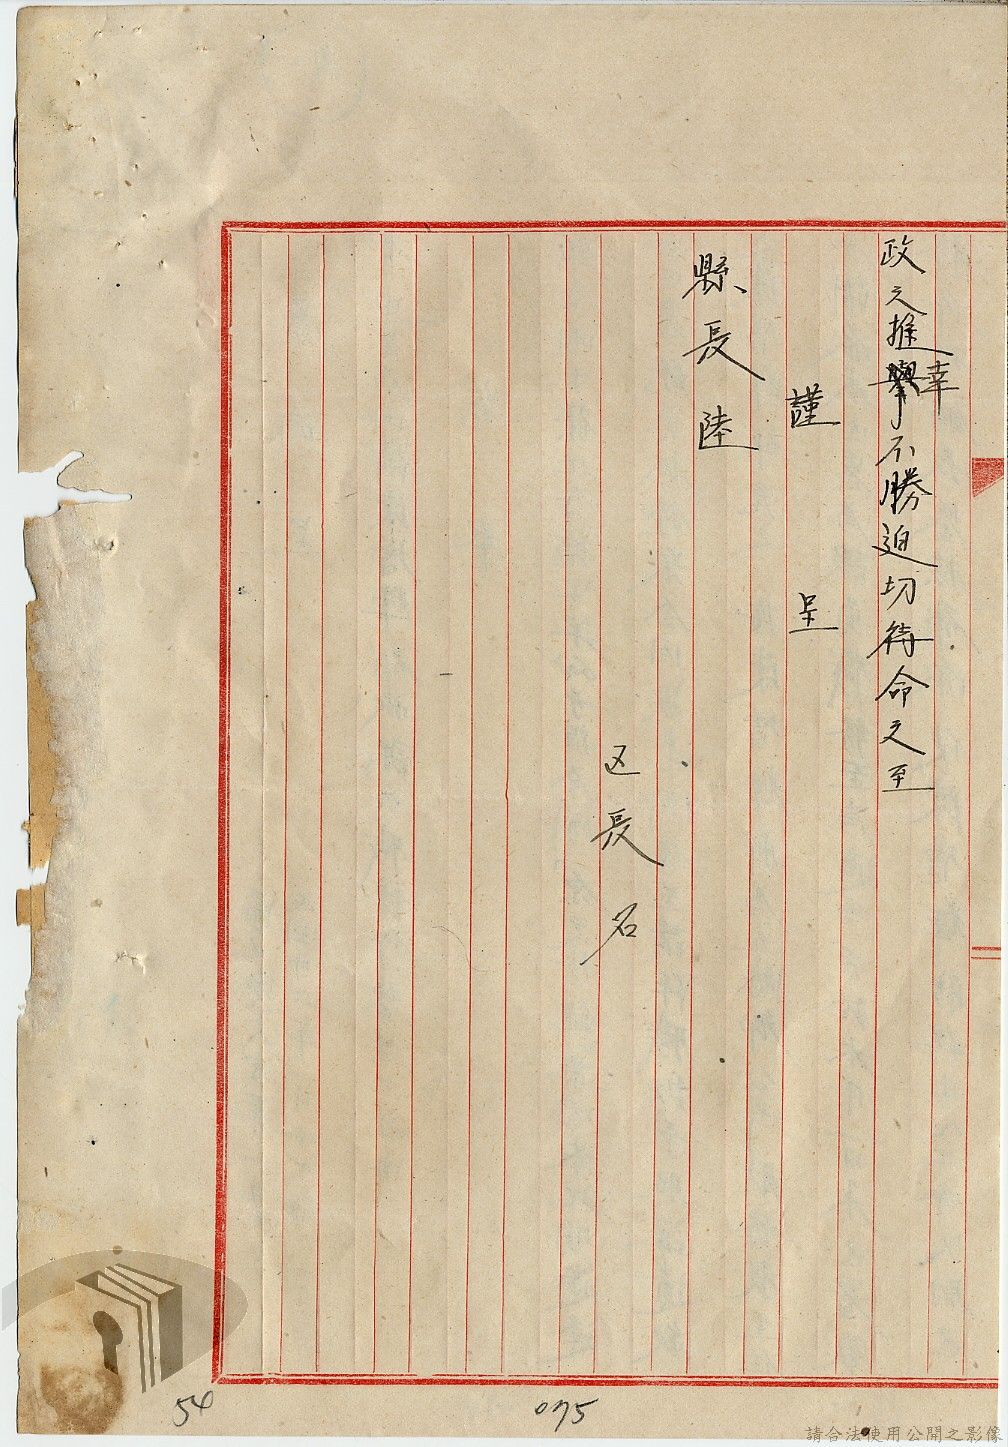 政之推幸不勝迫切待命之至
謹 呈
縣長陸
区長名
54
075
請合法使用公開之影像